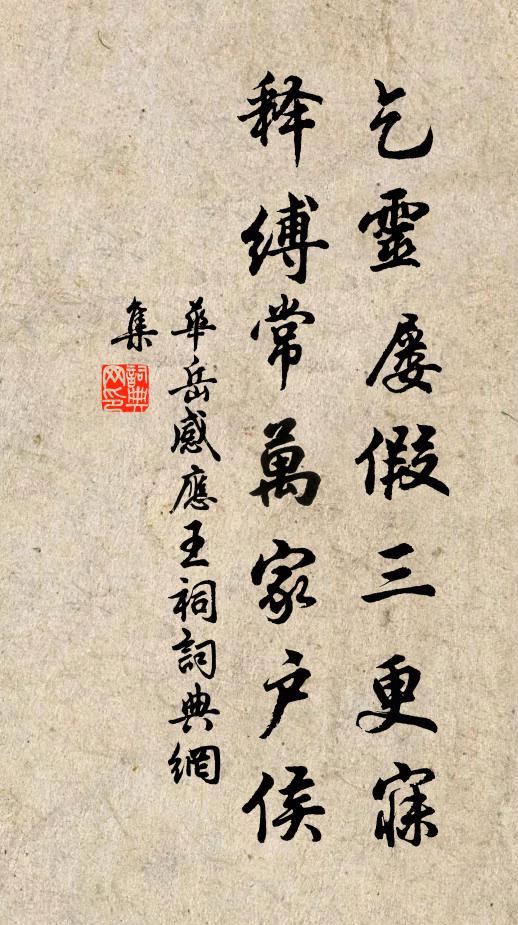 乞靈屡假三更寐
释缚常萬家户侯
華岳感應王祠詞典網
集
詞典
网印